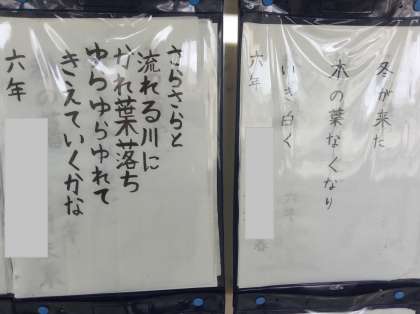 さらさらと
流れる川に
かれ葉落ち
ゆらゆらゆれて
きえていくかな
六年
冬が来た
木の葉なくなり
いき白く
六年
春